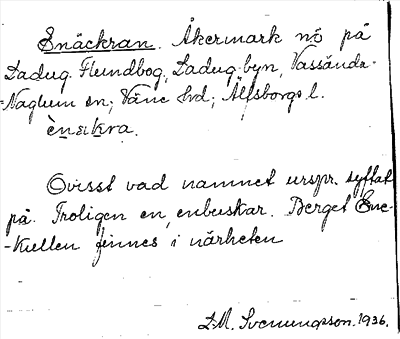 Enäckran. Åkermark nö på
Ladug. Flundbog, Ladug.byn, Vassända-
-Naglum sn; Väne hd; Älfsborgs l.
Ovisst vad namnet urspr. syftat
på. Troligen en, enbuskar. Berget Ene-
-kullen finnes i närheten
Svenungsson. 1936.